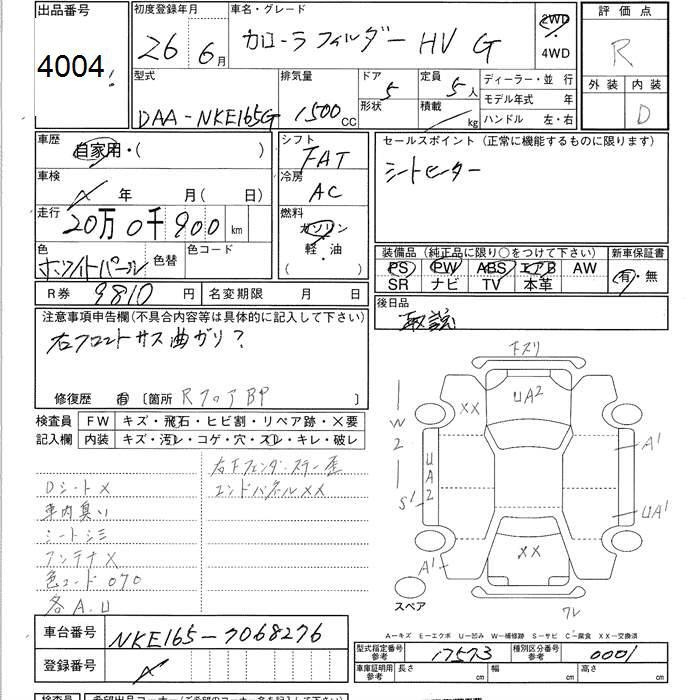 出品番号 初度登録年月 車名・グレード 2WD 評価点
4004 26年 6月 カローラフィルダー HV G 4WD R
型式 排気量 ドア 定員 ディーラー・並 行 外装 内装
DAA-NKE165G 1500cc 5 5人 モデル年式 年 D
形状 積載 kg ハンドル 左・右
車歴 シフト セールスポイント(正常に機能するものに限ります)
自家用・( ) FAT シートヒーター
車検 年 月(日) 冷房
AC
走行 20万0千900km 燃料
ガソリン
色 色替 色コード 軽・油
ホワイトパール ( )
装備品(純正品に限り○をつけて下さい) 新車保証書
PS PW ABS エアB AW 有・無
SR ナビ TV 本革
R券 9810円 名変期限 月 日
後日品
取説
注意事項申告欄(不具合内容等は具体的に記入して下さい)
右フロントサス曲ガリ?
修復歴 有 〔箇所 RフロアBP
検査員 FW キズ・飛石・ヒビ割・リペア跡・×要
記入欄 内装 キズ・汚レ・コゲ・穴・スレ・キレ・破レ
Dシート×
車内臭い
シートシミ
アンテナ×
色コード070
各A.U
エンドパネル××
下スリ
××
UA2
W2
UA2
S1
A1
UA1
××
A1
スペア
A-キズ E-エクボ U-凹み W-補修跡 S-サビ C-腐食 XX-交換済
車台番号 NKE165-7068276
登録番号
型式指定番号 参考 17573 種別区分番号 参考 0001
車庫証明用 参考 長さ cm 幅 cm 高さ cm